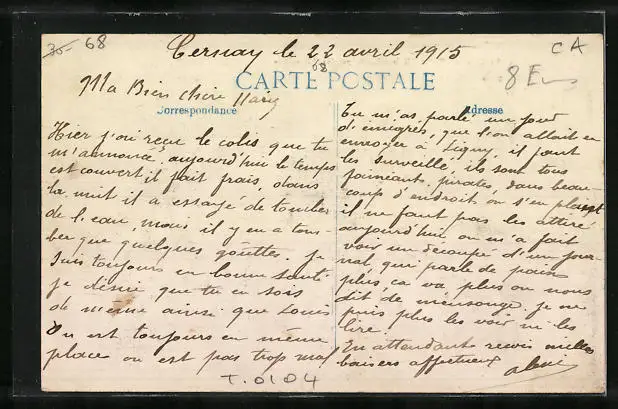 30- 68
Cernay le 22 avril 1915
CA
68
8 E
CARTE POSTALE
Ma Bien chère Marie
Correspondance
Adresse
Hier j'ai reçu le colis que tu
m'annonce, aujourd'hui le temps
est couvert il fait frais, dans
la nuit il a essayé de tomber
de l'eau, mais il y en a tom-
ber que quelques gouttes. Je
suis toujours en bonne santé
je désire que tu en sois
de même ainsi que Louis
On est toujours en même
place on est pas trop mal
Tu m'as parlé un jour
d'émigrés, que l'on allait en
envoyer à Ligny, il faut
les surveillé, ils sont tous
faineants, pirates, dans beau-
coup d'endroit on s'en plaint
il ne faut pas les attiré
aujourd'hui on m'a fait
voir un découpé d'un jour-
nal, qui parle de
plus, ça va, plus on nous
dit de mensonge, je ne
puis plus les voir ni les
lire.
En attendant reçois milles
baisers affectueux
T.0104